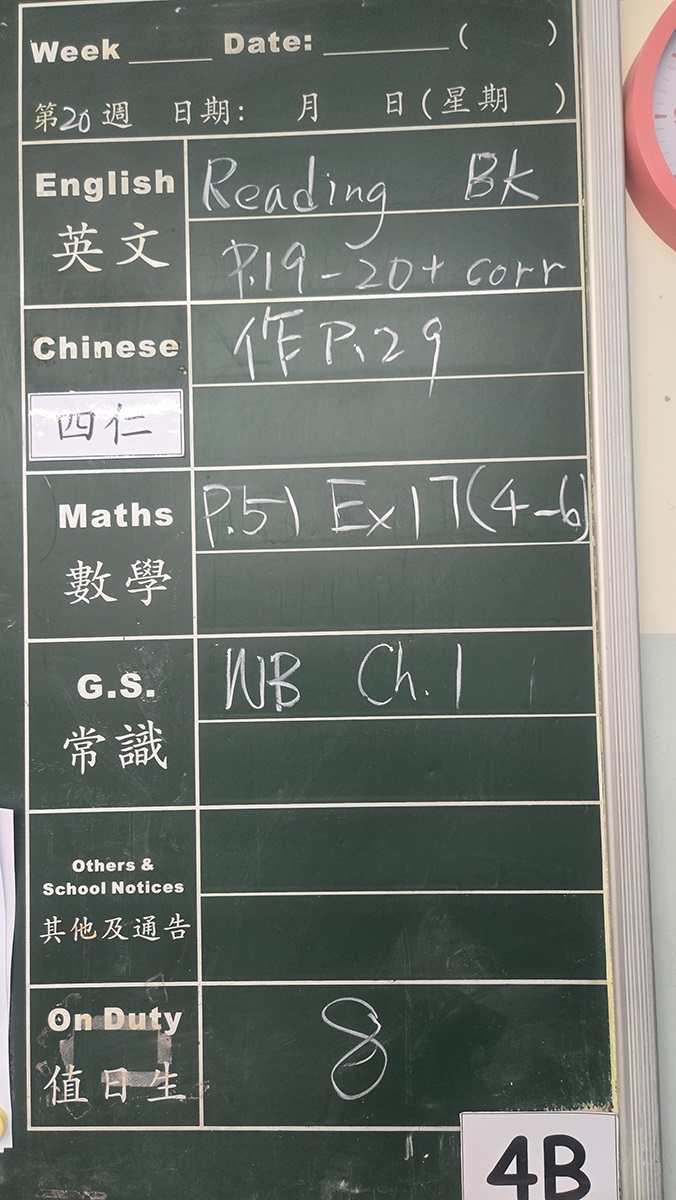 Week ____ Date: ________ (      )
第20週 日期: 月 日(星期 )
English
英文
Reading BK
P.19-20+ corr
Chinese
四仁
作P.29
Maths
數學
P.51 Ex17(4-6)
G.S.
常識
WB Ch.1
Others &
School Notices
其他及通告
On Duty
值日生
8
4B